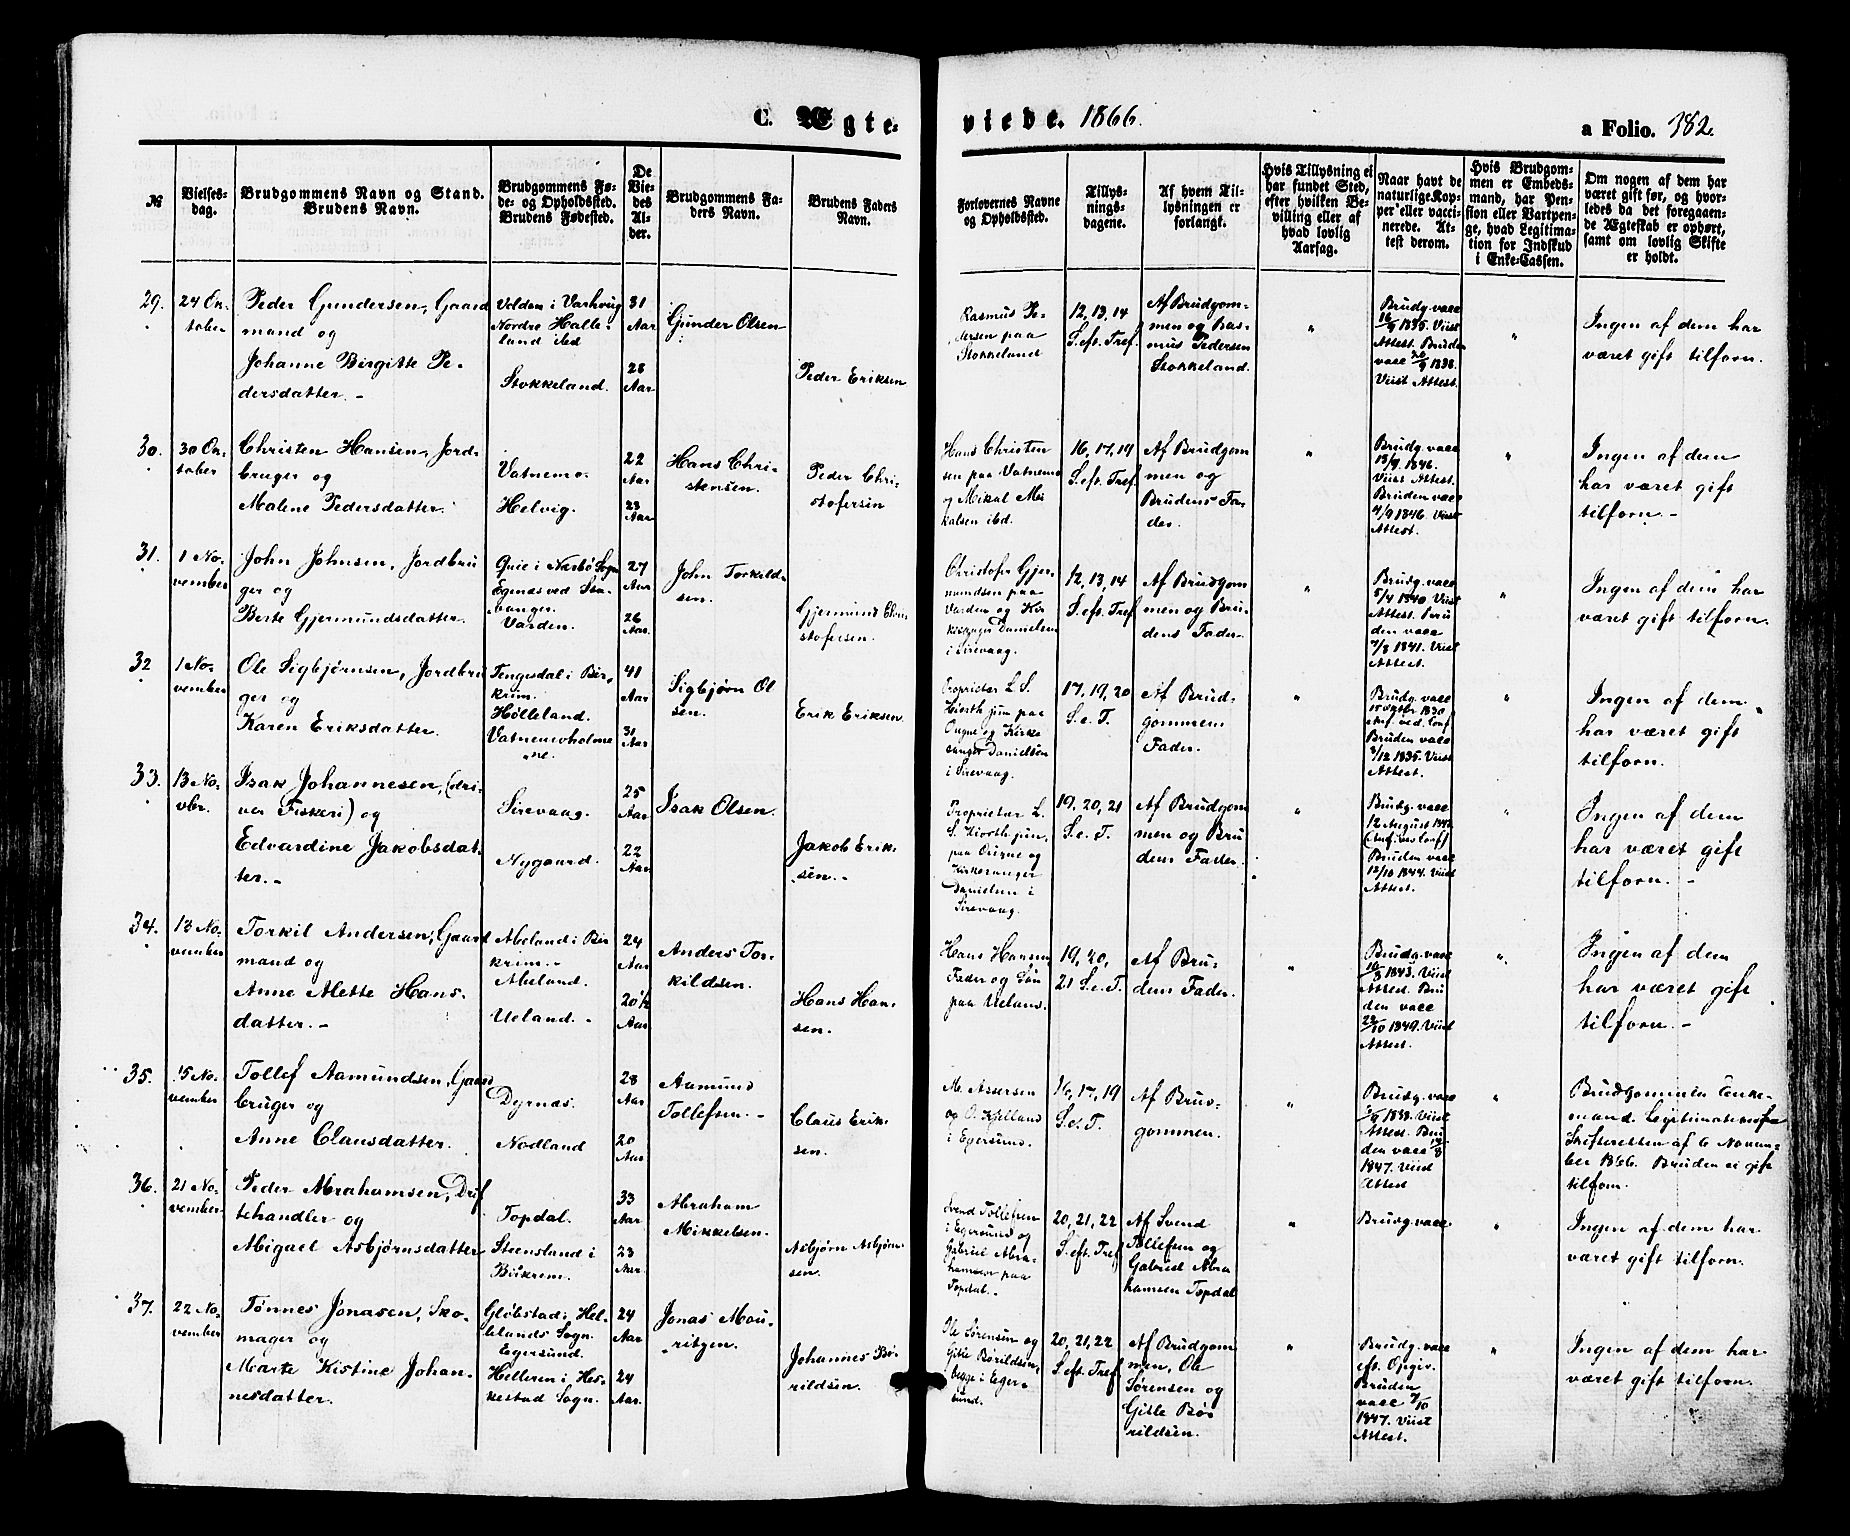 C. Ægte-
viede. 1866.
a Folio. 382.
№
Vielses-
dag.
Brudgommens Navn og Stand.
Brudens Navn.
Brudgommens Fø-
de- og Opholdssted.
Brudens Fødested.
De
Vie-
des
Al-
der.
Brudgommens Fa-
ders Navn.
Brudens Faders
Navn.
Forlovernes Navne
og Opholdssted.
Tillys-
nings-
dagene.
Af hvem Til-
lysningen er
forlangt.
Hvis Tillysning ei
har fundet Sted,
efter hvilken Be-
villing eller af
hvad lovlig
Aarsag.
Naar havt de
naturlige Kop-
per eller vacci-
nerede. At-
test derom.
Hvis Brudgom-
men er Embeds-
mand, har Pen-
sion eller Vartpen-
ge, hvad Legitima-
tion for Indskud
i Enke-Cassen.
Om nogen af dem har
været gift før, og hvor-
ledes da det foregaaen-
de Ægteskab er ophørt,
samt om lovlig Skifte
er holdt.
29.
24 Ok-
tober
Peder Gundersen, Gaard
mand og
Johanne Birgitte Pe-
dersdatter. -
Velden i Varhoug
Nordre Halle-
land ibd
Stokkeland.
31
Aar
28
Aar
Gunder Olsen
Peder Eriksen
Rasmus Pe-
dersen paa
Stokkeland
12, 13, 14
S. eft. Tref.
Af Brudgom-
men og Ras-
mus Pedersen
Stokkeland.
"
Brudg. vacc
16/9 1835. Viist
Attest. Bruden
vacc 20/9 1838.
Viist Attest.
"
Ingen af dem har
været gift tilforn.
30.
30 Ok-
tober
Christen Hansen, Jord-
bruger og
Malene Pedersdatter.
Vatnemo.
Helvig.
22
Aar
23
Aar
Hans Chri-
stensen.
Peder Chri-
stofersen
Hans Christen
sen paa Vatnemo
og Mikal Mi-
kalsen ibd.
16, 17, 19
S. eft. Tref.
Af Brudgom
men og
Brudens Fa-
der.
"
Brudg. vacc
13/9 1846.
Viist Attest.
Bruden vacc
4/9 1846. Viist
Attest.
"
Ingen af dem
har været gift
tilforn. -
31.
1 No-
vember
John Johnsen, Jordbru
ger og
Berte Gjermundsdatter.
Quie i Nærbø Sogn
Egenæs ved Sta-
vanger.
Varden.
27
Aar
26
Aar.
John Torkild-
sen.
Gjermund Chri-
stofersen.
Christofer Gjer-
mundsen paa
Varden og Kir
kesanger Danielsen
i Sirevaag.
12, 13, 14
S. eft. Tref.
Af Brudgom
men og Bru-
dens Fader.
"
Brudg. vacc
5/4 1840 Viist
Attest. Bru
den vacc
7/8 1841. Viist
Attest.
"
Ingen af dem har
været gift tilforn.
32
1 No-
vember
Ole Sigbjørnsen, Jordbru
ger og
Karen Eriksdatter.
Tengesdal i Bir-
krim.
Hølleland.
Vatnemoholme
ne.
41
Aar
31
Aar
Sigbjørn Ol
sen.
Erik Eriksen.
Proprietær L. S.
Hiorth jun paa
Ougne og Kirke
sanger Danielsen
i Sirevaag.
17, 19, 20
S. e. T.
Af Brud-
gommens
Fader.
"
Brudg. vacc
15 Octbr 1830
Anf. ved Conf
Bruden vacc
3/12 1835. Viist
Attest.
"
Ingen af dem
har været gift
tilforn.
33.
13 No-
vbr.
Isak Johannesen, (dri-
ver Fiskeri) og
Edvardine Jakobsdat-
ter. -
Sirevaag.
Nygaard.
25
Aar
22
Aar.
Isak Olsen.
Jakob Erik-
sen. -
Proprietær L.
S. Hiorth jun.
paa Ougne og
Kirkesanger
Danielsen i
Sirevaag.
19, 20, 21
S. e. T.
Af Brudgom
men og Bru
dens Fader.
"
Brudg. vacc
12 August
(Anf. ved Conf)
Bruden vacc
12/10 1844. Viist
Attest.
Ingen af dem
har været gift
tilforn. -
34.
13 No-
vember
Torkil Andersen, Gaard
mand og
Anne Alette Hans-
datter. -
Abeland i Bir
krim. -
Abeland.
Ueland. -
24
Aar
20½
Aar
Anders Tor-
kildsen.
Hans Han-
sen.
Hans Hansen
Fader og Søn
paa Ueland.
19, 20,
21 S. e. T.
Af Bru-
dens Fader.
"
Brudg. vacc
16/8 1843. Viist
Attest. Bru
den vacc
22/10 1849. Viist
Attest.
"
Ingen af dem
har været gift
tilforn. -
35.
15 No-
vember
Tollef Aamundsen, Gaard
bruger og
Anne Clausdatter.
Dyrnæs.
Nodland
28
Aar
20
Aar
Aamund
Tollefsen. -
Claus Erik-
sen.
M. Assersen
og O. Kjelland
i Egersund.
16, 17, 19
S. e. T.
Af Brud-
gommen.
"
Brudg. vacc
1838. Viist
Attest. Bru
den vacc
1847. Viist
Attest
"
Brudgommen Enke-
mand. Legitimation fra
Skifteretten af 6 Novem-
ber 1866. Bruden ei gift
tilforn.
36.
21 No-
vember
Peder Abrahamsen, Drif
tehandler og
Abigael Asbjørnsdatter
Topdal.
Steensland i
Birkrem.
33
Aar
23
Aar.
Abraham
Mikkelsen.
Asbjørn Asbjørn-
sen.
Svend Tollefsen
i Egersund og
Gabriel Abra-
hamsen paa
Topdal. -
20, 21, 22
S. eft. Tref
Af Svend
Tollefsen og
Gabriel Abra
hamsen Topdal
"
Brudg. vacc
"
Ingen af dem har
været gift tilforn.
37.
22 No-
vember
Tønnes Jonasen, Sko-
mager og
Marte Kistine Johan-
nesdatter.
Gløbstad i Hel-
lelands Sogn.
Egersund.
Helleren i Hes-
kestad Sogn.
24
Aar
24
Aar.
Jonas Mou-
ritzen.
Johannes Bø-
rildsen.
Ole Sørensen og
Gitle Børildsen,
begge i Eger-
sund.
20, 21, 22
S. eft. Tref
Af Brudgom
men, Ole
Sørensen og
Gitle Bø-
rildsen.
"
Brudg. vacc
eft. Opgiv.
Bruden
vacc 7/10
1847. Viist
Attest.
"
Ingen af dem har
været gift tilforn.